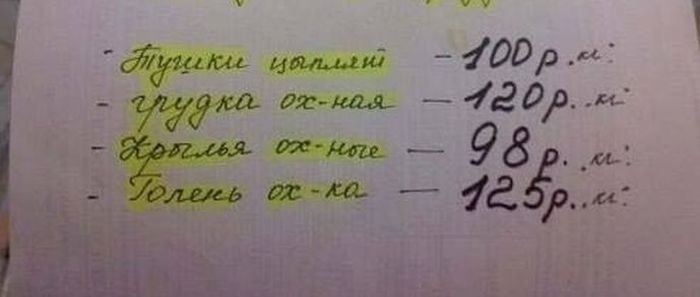 - Тушки цыплят - 100 р.
- грудка ох-ная - 120 р.
- Крылья ох-ные - 98 р.
- Голень ох-ка - 125 р.